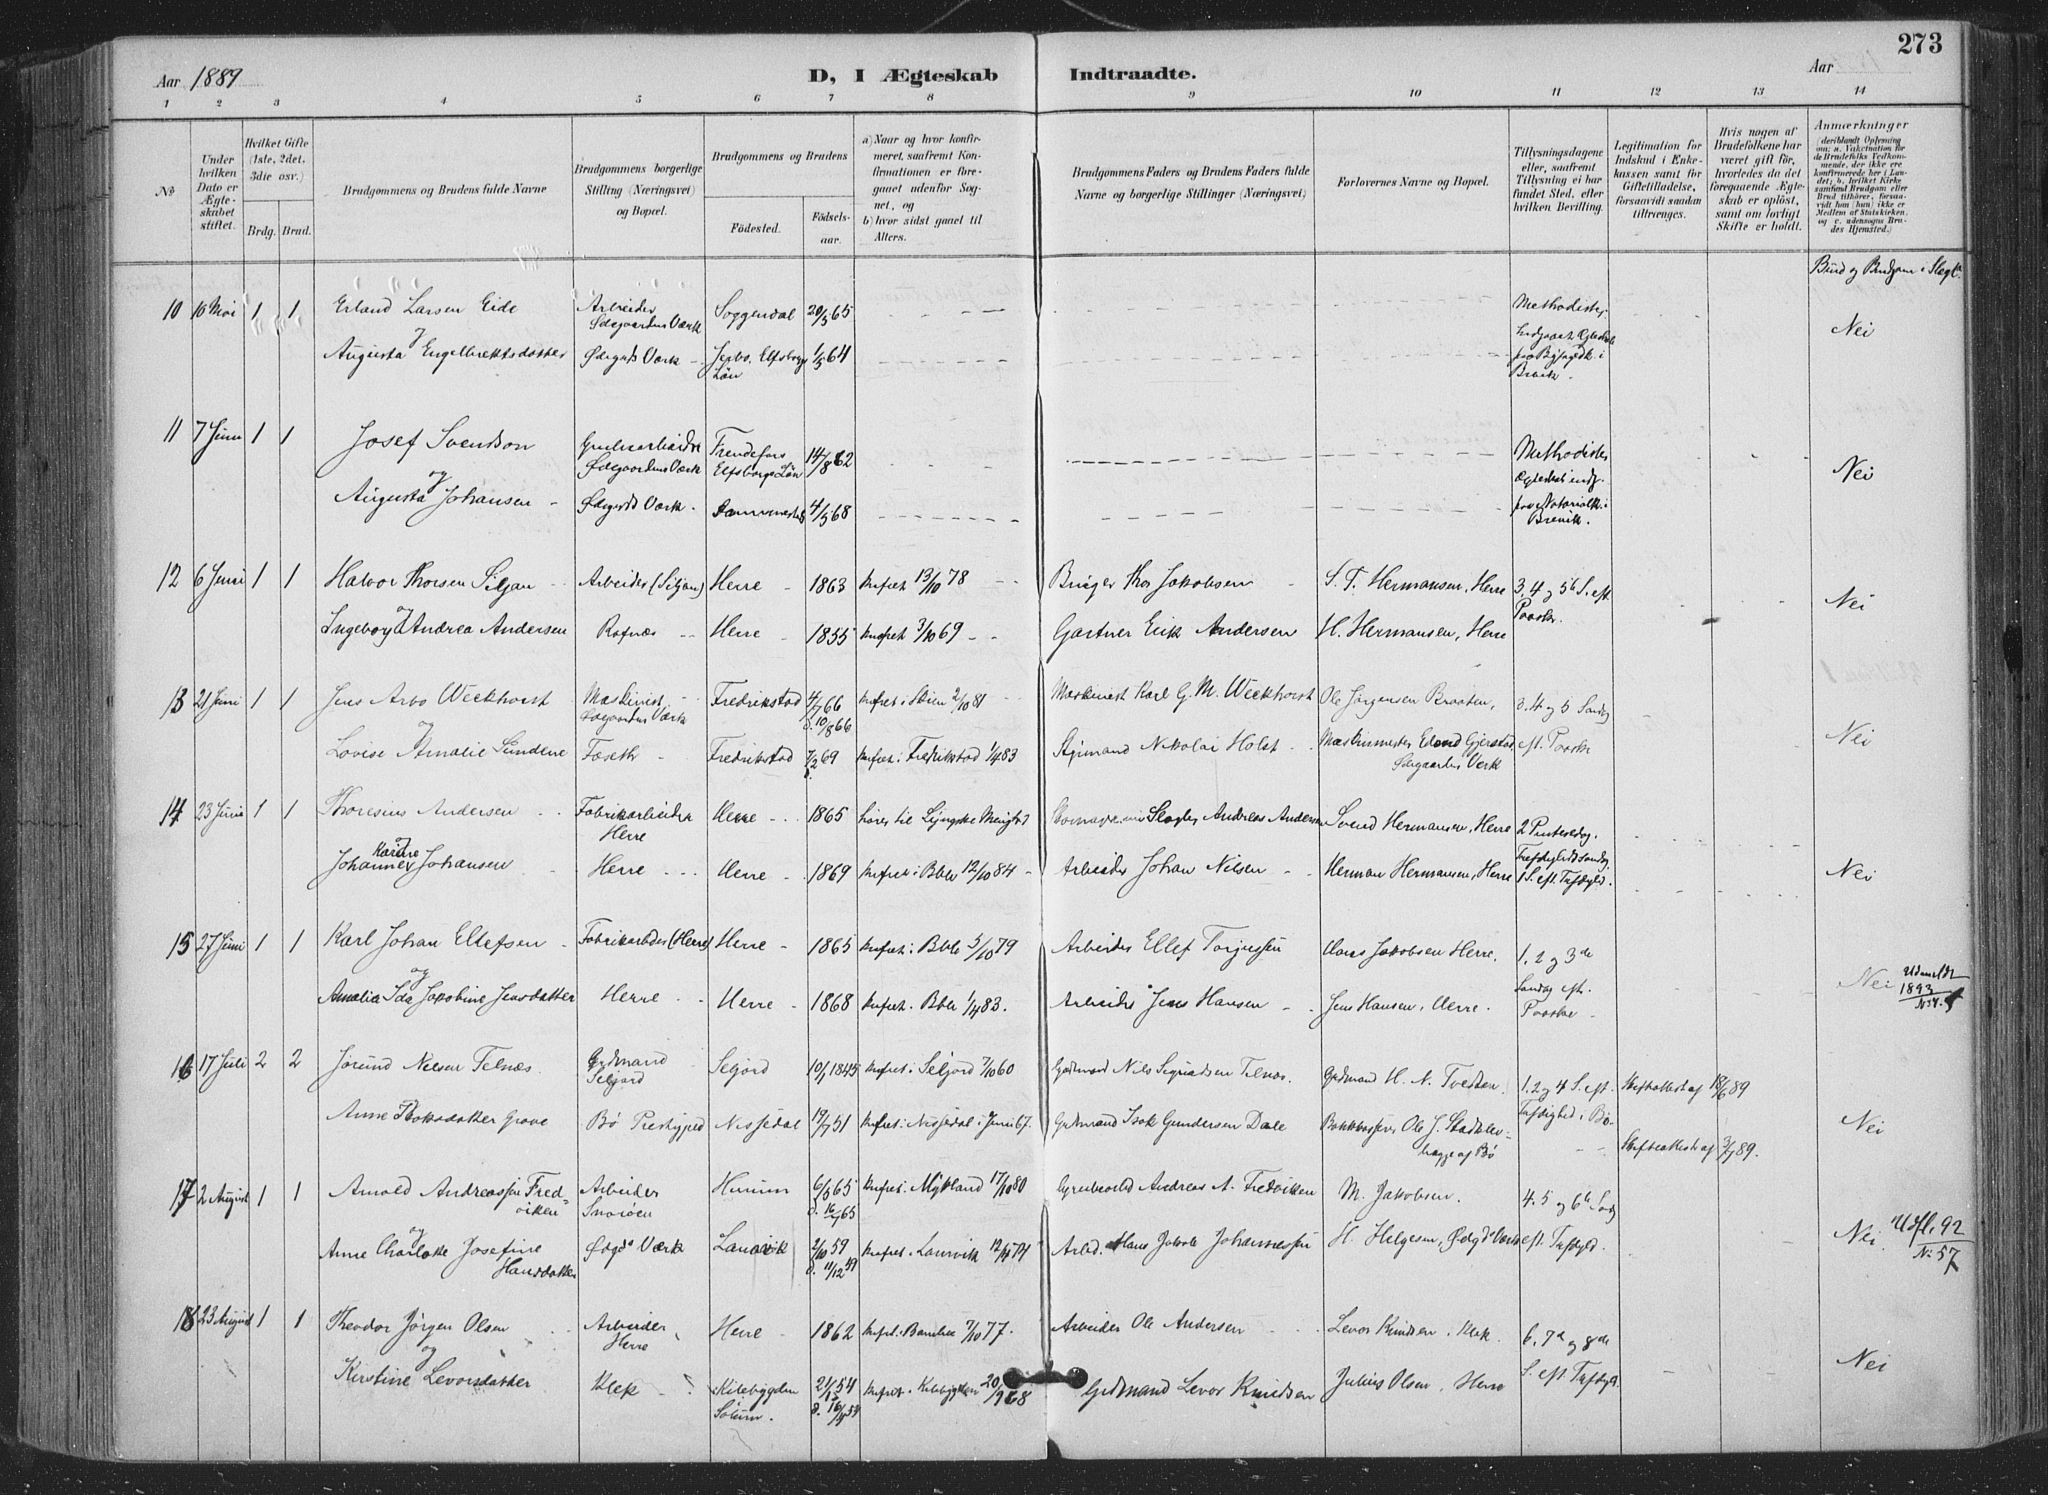 273
Aar 1889
D, I Ægteskab Indtraadte.
Aar
1 2 3 4 5 6 7 8 9 10 11 12 13 14
No
Under hvilken Dato er Ægteskabet stiftet.
Hvilket Gifte (1ste, 2det, 3die osv.)
Brdg. Brud.
Brudgommens og Brudens fulde Navne
Brudgommens borgerlige Stilling (Næringsvei) og Bopæl.
Brudgommens og Brudens
Fødested.
Fødsels-aar.
a) Naar og hvor konfirmeret, saafremt Konfirmationen er foregaaet udenfor Sognet, og
b) hvor sidst gaaet til Alters.
Brudgommens Faders og Brudens Faders fulde Navne og borgerlige Stillinger (Næringsvei)
Forlovernes Navne og Bopæl.
Tillysningsdagene eller, saafremt Tillysning ei har fundet Sted, efter hvilken Bevilling.
Legitimation for Indskud i Enkekassen samt for Giftetilladelse, forsaavidt saadan tiltrænges.
Hvis nogen af Brudefolkene har været gift før, hvorledes da det foregaaende Ægteskab er opløst, samt om lovligt Skifte er holdt.
Anmærkninger
Brud og Brudgom i Slegt
10 16 Mai 1 1 Erland Larsen Eide Arbeider Ødegaardens Værk Soggendal 20/5 65 Methodister
og
Augusta Engelbrektsdatter Ødegrds Værk Elfsborgs Län 1/5 64 Brevik. Nei
11 7 Juni 1 1 Josef Svendson Grubearbeider Ødegaardens Værk Elfsborgs Län 14/8 62 Methodister
og
Augusta Johansen Ødegrds Værk Sammesteds 4/5 68 Brevik. Nei
12 6 Juni 1 1 Halvor Thorsen Siljan Arbeider (Siljan) Herre 1863 knfret 13/10 78 Bruger Thor Jakobsen S. T. Hermansen, Herre 3, 4 og 5te S. eft. Paaske.
og
Ingeborg Andrea Andersen Rafnæs Herre 1855 knfret 3/10 69 Gartner Erik Andersen H. Hermansen, Herre Nei
13 21 Juni 1 1 Jens Arbo Weckhorst Maskinist Ødegaardens Værk Fredrikstad 4/7 66 d. 10/8 66 knfret i Skien 2/10 81 Maskinist Karl G. M. Weckhorst Ole Jørgensen Braaten, 3. 4 og 5 Søndag
og
Lovise Amalie Sundene Fredrikstad 7/2 69 knfret i Fredrikstad 1/4 83 Nikolai Holst Maskinmester Edvard Gjerstad Ødegaardens Værk eft. Paaske Nei
14 23 Juni 1 1 Thoresius Andersen Fabrikarbeider Herre Herre 1865 Andreas Andersen Svend Hermansen, Herre 2 Pintsedag.
Johanne Karine Johansen Herre Herre 1869 knfret i Bble 12/10 84 Arbeider Johan Nilsen Herman Hermansen, Herre Trefoldighedssøndag 1 S. eft. Trefdgld. Nei
15 27 Juni 1 1 Karl Johan Ellefsen Fabrikarbeder (Herre) Herre 1865 knfret i Bble 5/10 79 Arbeider Ellef Torjussen Claus Jakobsen Herre. 1, 2 og 3de
og
Amalia Ida Jakobine Jensdatter Herre Herre 1868 knfret i Bble 1/4 83. Arbeider Jens Hansen Jens Hansen, Herre. Søndag eft. Paaske Nei Udmeldt 1893
16 17 Juli 2 2 Jørund Nielsen Telnæs Grdmand Seljord Seljord 10/1 1845 knfret i Seljord 7/10 60 Grdmand Nils Sigurdsen Telnæs. Grdmand H. N. Tvedten 1, 2 og 4 S. eft. Skifteattest af 18/6 89
Anne Isaksdatter Grave Bø Præstegjeld Nissedal 19/7 51 knfret i Nissedal i Juni 67. Grdmand Isak Gundersen Dale Ole J. af Bø Trfdighed i Bø. Skifteattest af 3/7 89. Nei
17 2 August 1 1 Arnold Andreassen Fredviken Arbeider Hurum 6/5 65 d. 16/7 65 knfret i Mykland 17/10 80 Grubearbd Andreas A. Fredviken M. Jakobsen. 4. 5 og 6te Søndg
og
Anne Charlotte Josefine Hansdatter Ødgds Værk Laurvik 2/10 59 d. 11/12 59 knfret i Laurvik Arbd. Hans Jakob Johannessen H. Helgesen, Ødgds Værk eft. Trfdgld. Nei. Udfl. 92 N: 57
18 23 August 1 1 Theodor Jørgen Olsen Arbeider Herre Herre 1862 knfret i Bamble 7/10 77. Arbeider Ole Andersen Levor Knudsen, Klek 6. 7de og 8de
og
Kirstine Levorsdatter Klek Kilebygden Solum. 21/1 54 knfret i Kilebygden 20/9 68 Grdmand Levor Knudsen Julius Olsen, Herre S. eft. Trfdgd. Nei